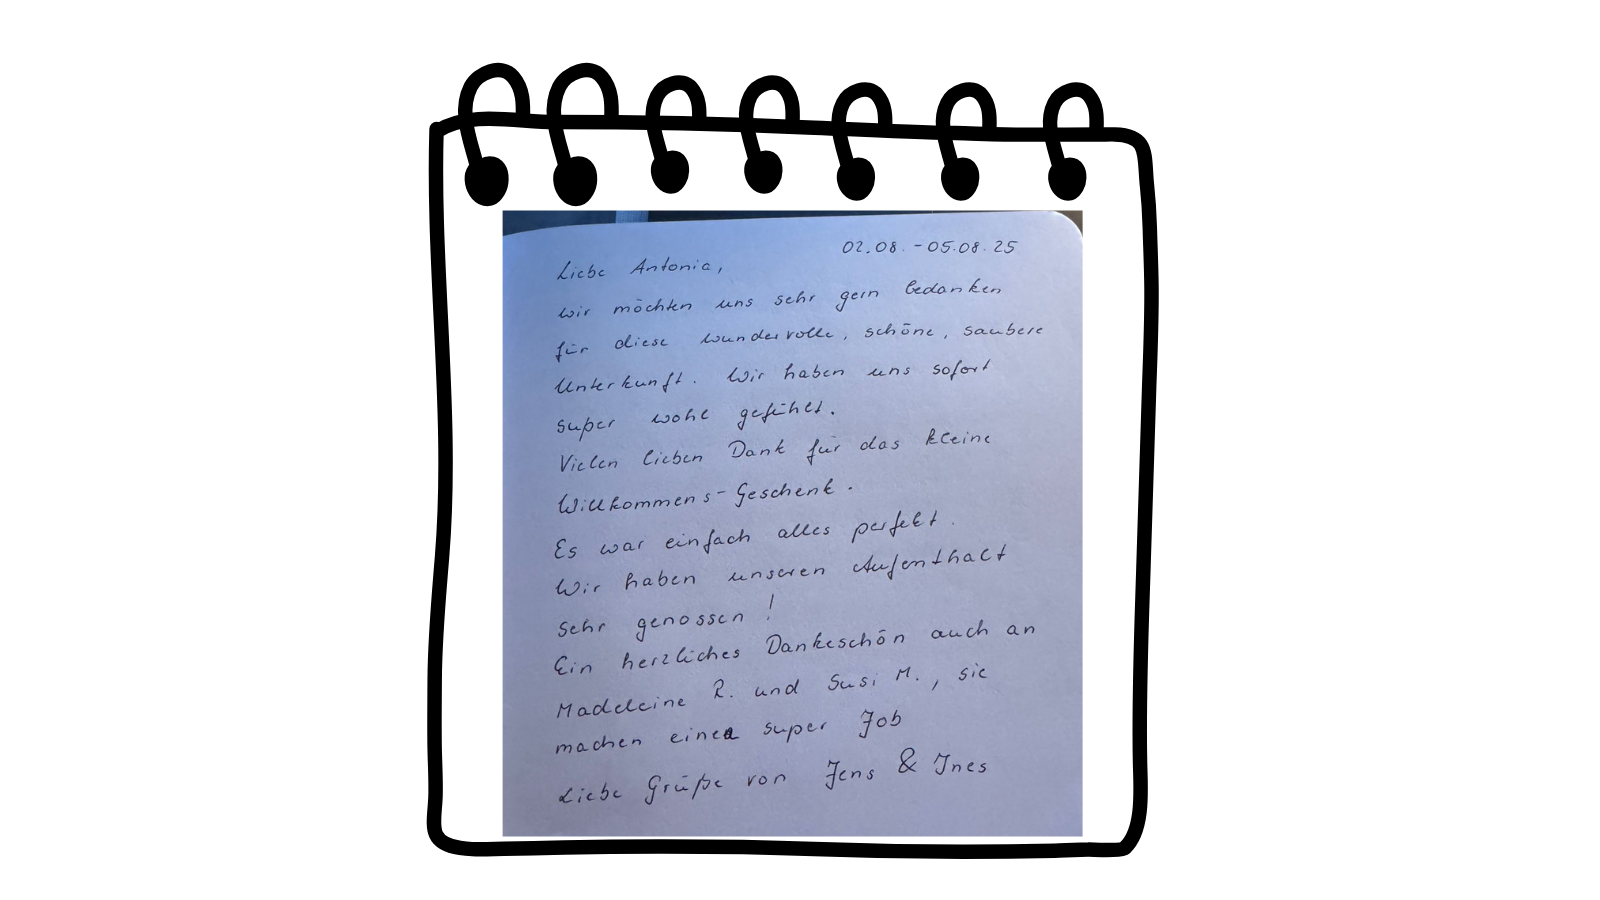 02.08. - 05.08.25
Liebe Antonia,
wir möchten uns sehr gern bedanken
für diese wundervolle, schöne, saubere
Unterkunft. Wir haben uns sofort
super wohl gefühlt.
Vielen lieben Dank für das kleine
Willkommens-Geschenk.
Es war einfach alles perfekt.
Wir haben unseren Aufenthalt
sehr genossen!
Ein herzliches Dankeschön auch an
Madeleine R. und Susi M., sie
machen einen super Job
Liebe Grüße von Jens & Ines